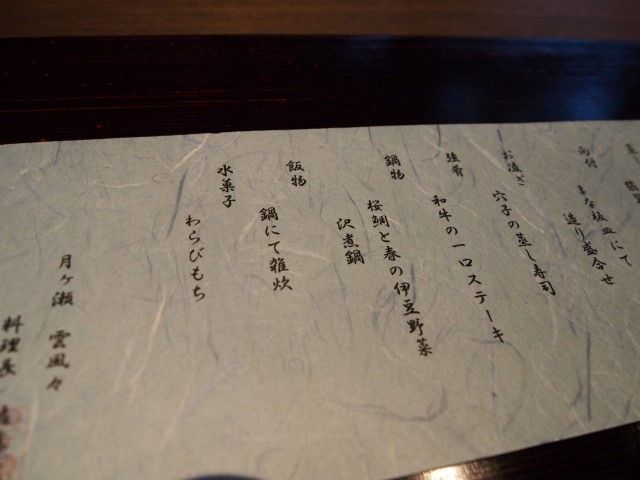 向付
まな板皿にて
造り盛合せ
お凌ぎ
穴子の蒸し寿司
強肴
和牛の一口ステーキ
鍋物
桜鯛と春の伊豆野菜
沢煮鍋
飯物
鍋にて雑炊
水菓子
わらびもち
月ヶ瀬 雲風々
料理長